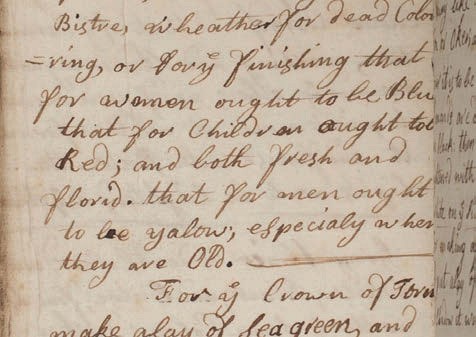 Bistre, wheather for dead Colou
=ring, or for yͤ finishing that
for women ought to be Blu
that for Children ought to
Red; and both fresh and
florid. that for men ought
to be yalow; especialy when
they are Old.
For yͤ Crown of
make a lay of Sea green, and